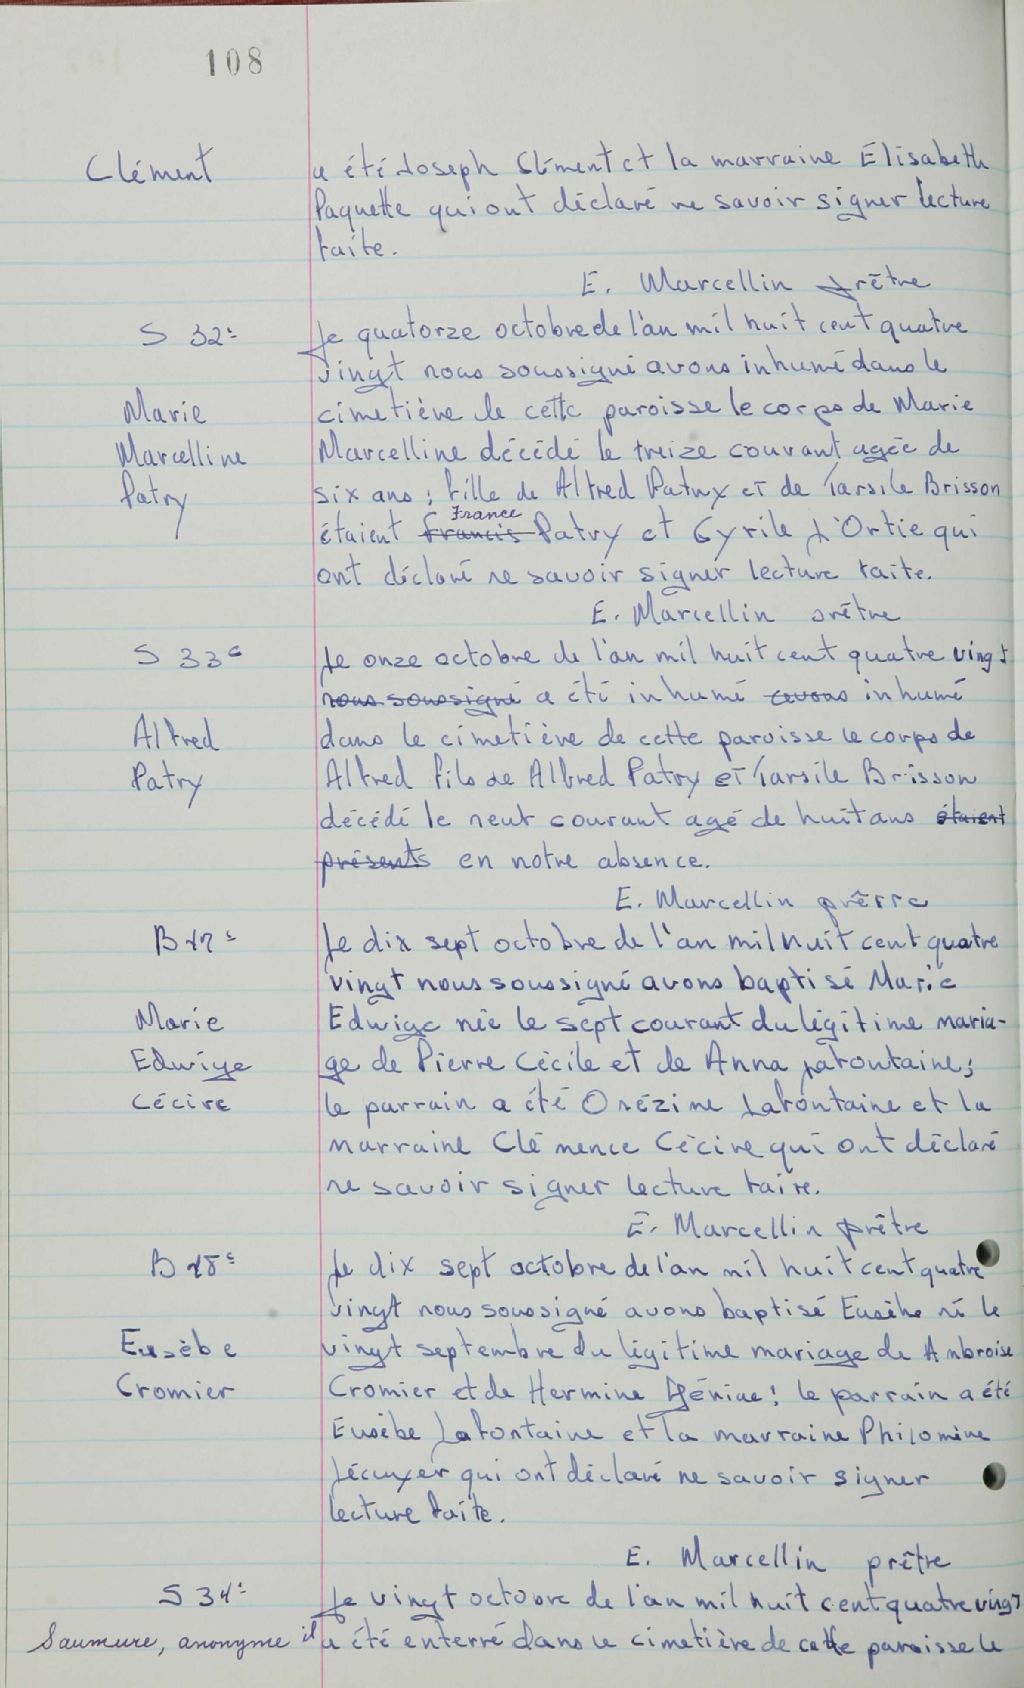 108
Clément
a été Joseph Clément et la marraine Elisabeth
Paquette qui ont déclaré ne savoir signer lecture
faite.
E. Marcellin prêtre
S 32e
Le quatorze octobre de l'an mil huit cent quatre
vingt nous soussigné avons inhumé dans le
Marie
cimetière de cette paroisse le corps de Marie
Marcelline
Marcelline décédé le treize courant agée de
Patry
six ans; fille de Alfred Patry et de Tarsile Brisson
France
étaient Francis Patry et Cyrile L'Ortie qui
ont déclaré ne savoir signer lecture faite.
E. Marcellin prêtre
S 33e
Le onze octobre de l'an mil huit cent quatre vingt
nous soussigné a été inhumé avons inhumé
Alfred
dans le cimetière de cette paroisse le corps de
Patry
Alfred fils de Alfred Patry et Tarsile Brisson
décédé le neuf courant agé de huit ans étaient
présents en notre absence.
E. Marcellin prêtre
B 17e
Le dix sept octobre de l'an mil huit cent quatre
vingt nous soussigné avons baptisé Marie
Marie
Edwige née le sept courant du légitime maria-
Edwige
ge de Pierre Cécile et de Anna Lafontaine;
Cécire
le parrain a été Onézime Lafontaine et la
marraine Clémence Cécire qui ont déclaré
ne savoir signer lecture faite.
E. Marcellin prêtre
B 18e
Le dix sept octobre de l'an mil huit cent quatre
vingt nous soussigné avons baptisé Eusèbe né le
Eusèbe
vingt septembre du légitime mariage de Ambroise
Cromier
Cromier et de Hermine Génine; le parrain a été
Eusèbe Lafontaine et la marraine Philomine
Lécuyer qui ont déclaré ne savoir signer
lecture faite.
E. Marcellin prêtre
S 34e
Le vingt octobre de l'an mil huit cent quatre vingt
Saumure, anonyme
il a été enterré dans le cimetière de cette paroisse le